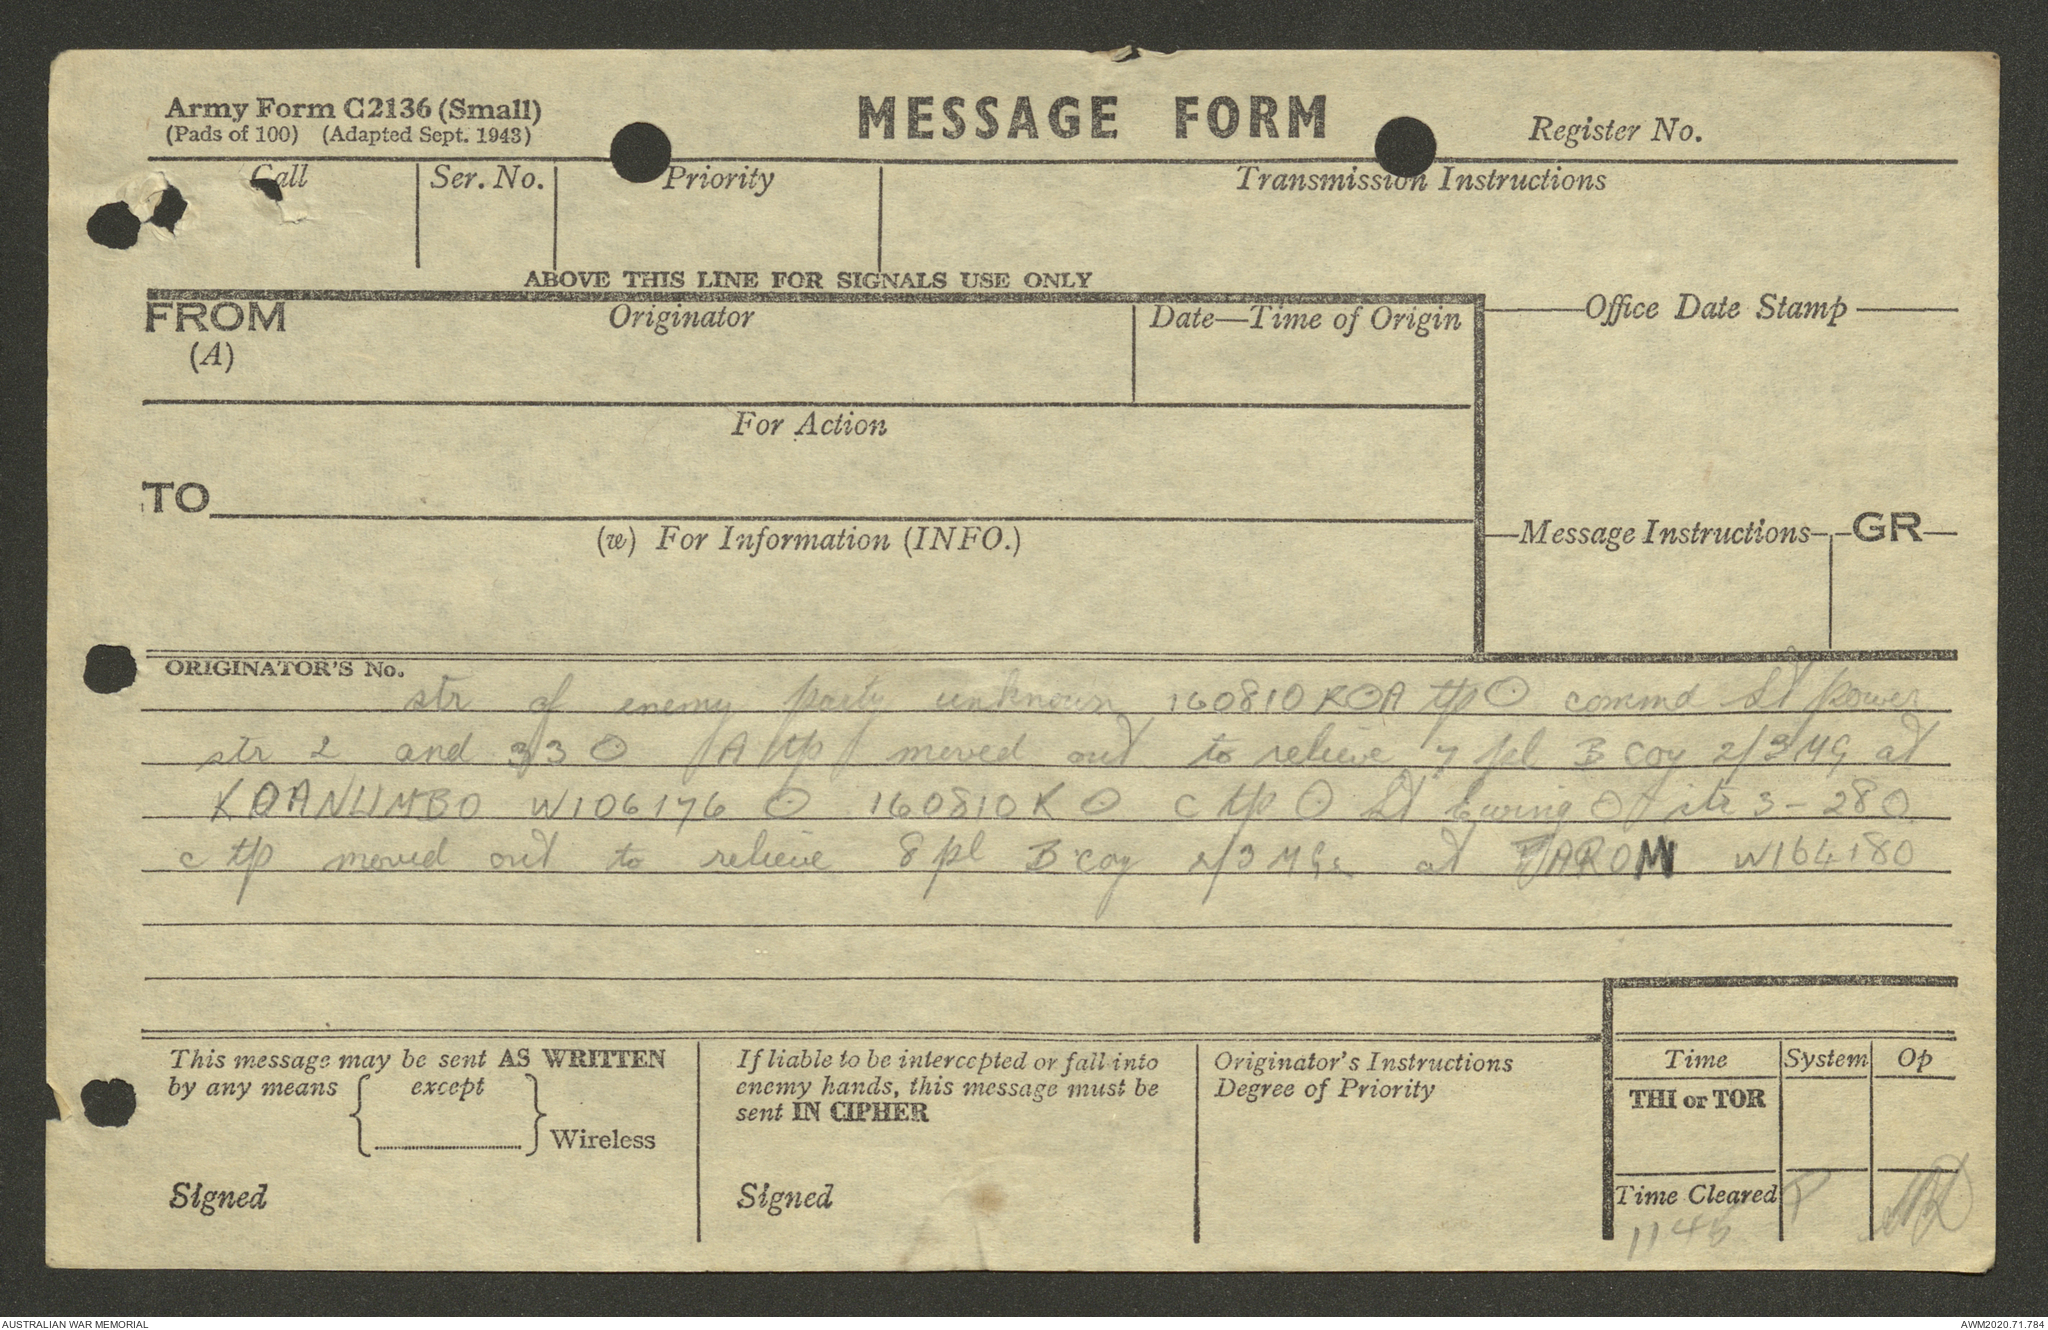 Army Form C2136 (Small)
(Pads of 100) (Adapted Sept. 1943)
MESSAGE FORM
Register No.
Call
Ser. No.
Priority
Transmission Instructions
ABOVE THIS LINE FOR SIGNALS USE ONLY
FROM
(A)
Originator
Date—Time of Origin
Office Date Stamp
For Action
TO
(w) For Information (INFO.)
Message Instructions
GR
ORIGINATOR'S No.
str of enemy party unknown 160810K O A tp O commd Lt power
str 2 and 33 O A tp moved out to relieve 7 pl B coy 2/3 MG at
KOANUMBO W106176 O 160810K O C tp O Lt Ewing O str 3-28 O
C tp moved out to relieve 8 pl B coy 2/3 MGs at W164180
This message may be sent AS WRITTEN
by any means { except } Wireless
Signed
If liable to be intercepted or fall into
enemy hands, this message must be
sent IN CIPHER
Signed
Originator's Instructions
Degree of Priority
Time
System
Op
THI or TOR
Time Cleared
1145
P
AUSTRALIAN WAR MEMORIAL
AWM2020.71.784